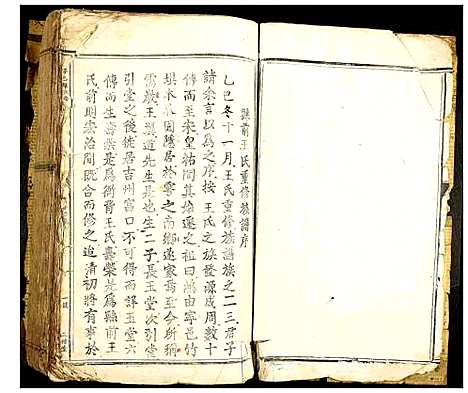 縣前王氏重修族譜序
乙巳冬十一月王氏重修族譜族之二三君子
請余言以為之序按王氏之族發源成周數十
傳而至宋皇祐間其始遷之祖曰鴻由寧邑竹
埧本 固隱居於寧之南鄉遂家焉至今所稱
雲歲王巽道先生是也生二子長玉堂次引堂
引堂之後徙居吉州富口不可得而詳玉堂六
傳而生壽榮是為衙背王氏壽榮是為縣前王
氏前明宏治間既合而修之迨清初將有事於